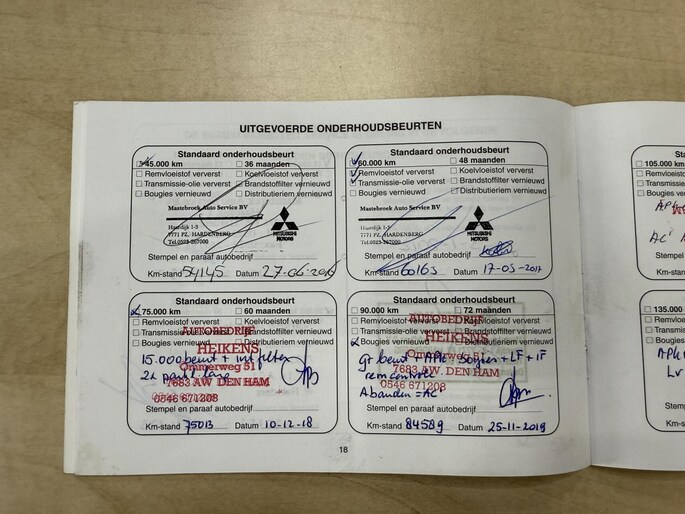 UITGEVOERDE ONDERHOUDSBEURTEN
Standaard onderhoudsbeurt
45.000 km 36 maanden
Remvloeistof ververst Koelvloeistof ververst
Transmissie-olie ververst Brandstoffilter vernieuwd
Bougies vernieuwd Distributieriem vernieuwd
Mastebroek Auto Service BV
Haardijk 1-3
7771 PZ, HARDENBERG
Tel.0523-267000
MITSUBISHI
MOTORS
Stempel en paraaf autobedrijf
Km-stand 54145 Datum 27-06-2016
Standaard onderhoudsbeurt
60.000 km 48 maanden
Remvloeistof ververst Koelvloeistof ververst
Transmissie-olie ververst Brandstoffilter vernieuwd
Bougies vernieuwd Distributieriem vernieuwd
Mastebroek Auto Service BV
Haardijk 1-3
7771 PZ, HARDENBERG
Tel.0523-267000
MITSUBISHI
MOTORS
Stempel en paraaf autobedrijf
Km-stand 60163 Datum 17-05-2017
Standaard onderhoudsbeurt
75.000 km 60 maanden
Remvloeistof ververst Koelvloeistof ververst
Transmissie-olie ververst Brandstoffilter vernieuwd
Bougies vernieuwd Distributieriem vernieuwd
AUTOBEDRIJF
HEIKENS
Ommerweg 51
7683 AW DEN HAM
0546 671208
15.000 beurt + int filter
2x
Stempel en paraaf autobedrijf
Km-stand 75013 Datum 10-12-18
Standaard onderhoudsbeurt
90.000 km 72 maanden
Remvloeistof ververst Koelvloeistof ververst
Transmissie-olie ververst Brandstoffilter vernieuwd
Bougies vernieuwd Distributieriem vernieuwd
AUTOBEDRIJF
HEIKENS
Ommerweg 51
7683 AW DEN HAM
0546 671208
Gr beurt + APK + Bougies + LF + IF
remcontrole
4 banden = AC
Stempel en paraaf autobedrijf
Km-stand 84589 Datum 25-11-2019
18
Sta
105.000
Remvl
Transm
Bougie
AC
Stempel
Km-stand
St
135.000
Remvl
Transm
Bougie
APK
Lv
Stempel
Km-stand